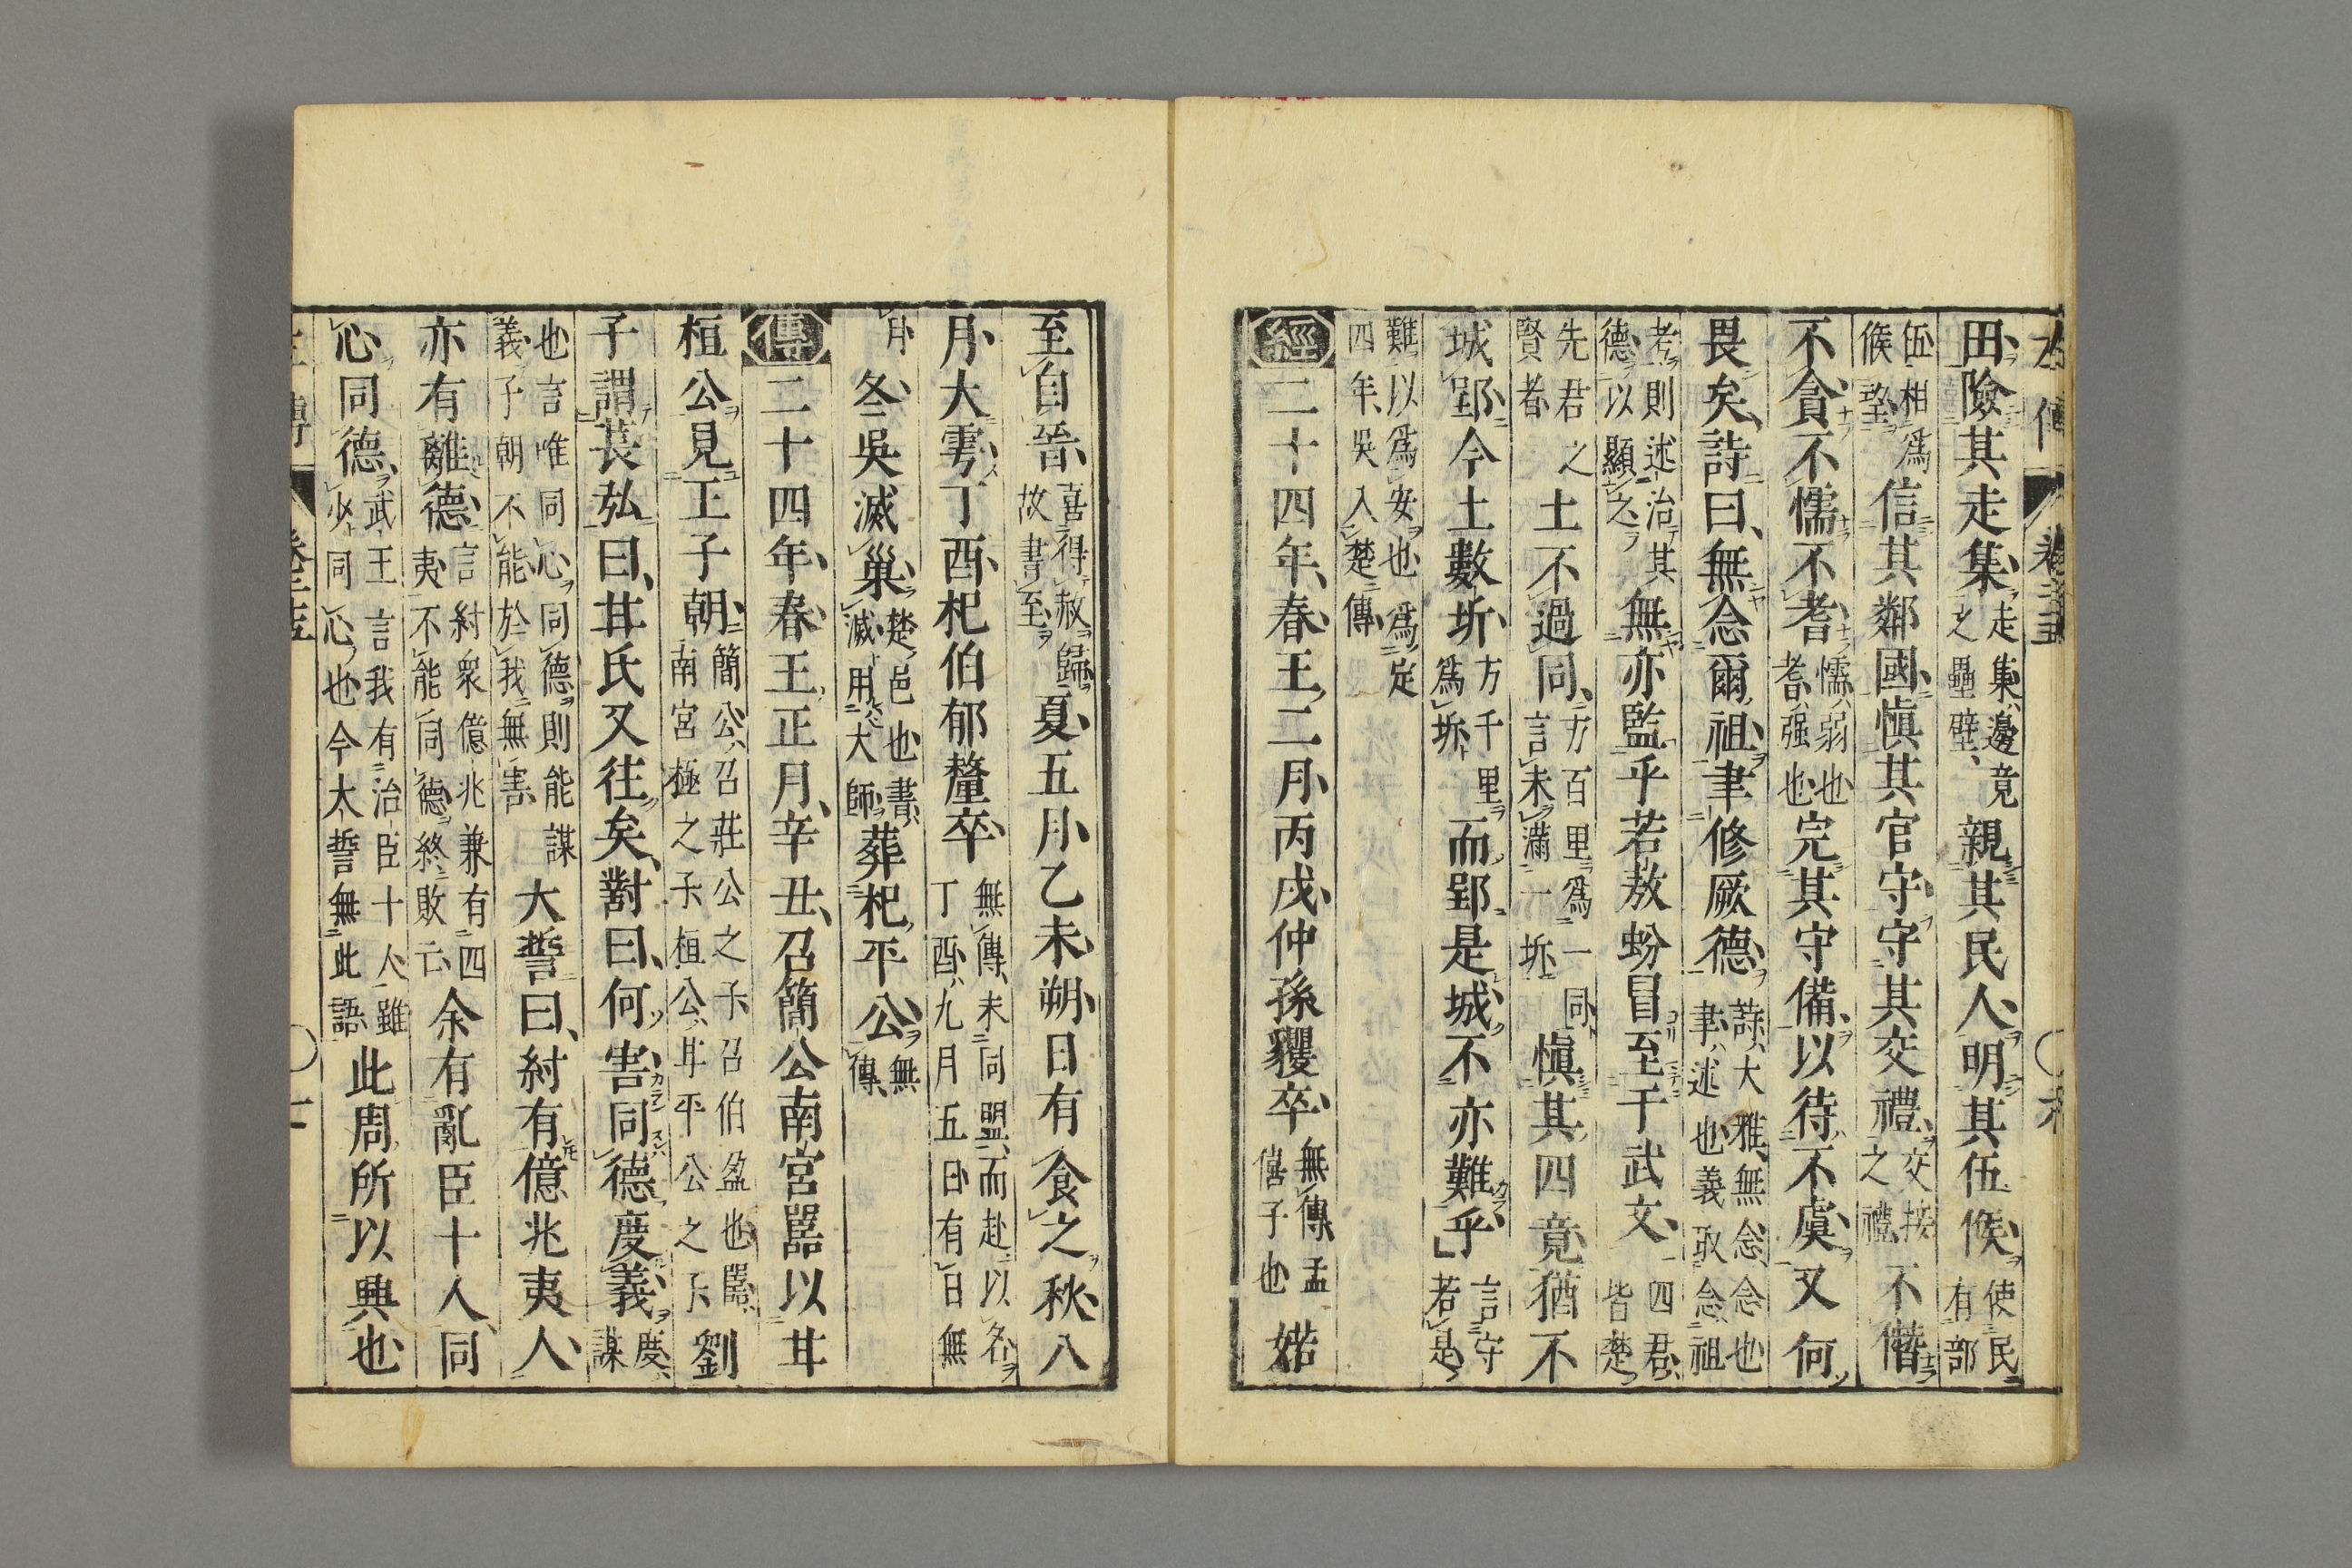 左傳 卷二十五
田險其走集走集邊竟之壘壁親其民人明其伍候使民有部
伍相爲候望信其鄰國愼其官守守其交禮交接之禮不僭
不貪不懦不耆懦弱也耆强也完其守備以待不虞又何
畏矣詩曰無念爾祖聿修厥德詩大雅無念念也聿述也義取念祖
考則述治其德以顯之無亦監乎若敖蚡冒至于武文四君皆楚
先君之賢者土不過同方百里爲一同言未滿一圻愼其四竟猶不
城郢今土數圻方千里爲圻而郢是城不亦難乎言守若是
難以爲安也爲定四年吳入楚傳
經二十四年春王二月丙戌仲孫貜卒無傳孟僖子也婼
至自晉喜得赦歸故書至夏五月乙未朔日有食之秋八
月大雩丁酉杞伯郁釐卒無傳未同盟而赴以名丁酉九月五日有日無
月冬吳滅巢楚邑也書滅用大師葬杞平公無傳
傳二十四年春王正月辛丑召簡公南宮嚚以甘
桓公見王子朝簡公召莊公之子召伯盈也嚚南宮極之子桓公甘平公之子劉
子謂萇弘曰甘氏又往矣對曰何害同德度義度謀
也言唯同心同德則能謀義子朝不能於我無害大誓曰紂有億兆夷人
亦有離德言紂衆億兆兼有四夷不能同德終敗亡余有亂臣十人同
心同德武王言我有治臣十人雖少同心也今大誓無此語此周所以興也
左傳 卷二十五